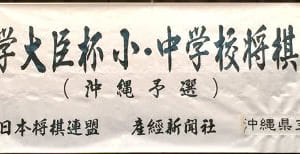 学大臣杯小・中学校将棋
(沖縄予選)
日本将棋連盟 産經新聞社 沖縄県